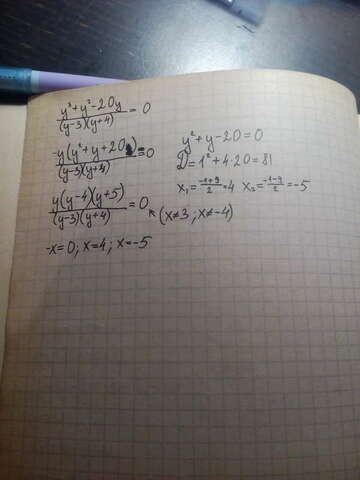 y³+y²-20y / (y-3)(y+4) = 0
-y(y²+y+20)- / (y-3)(y+4) = 0
y(y-4)(y+5) / (y-3)(y+4) = 0
(x≠3 ; x≠-4)
-x=0; x=4; x=-5
y²+y-20=0
D=1²+4·20=81
x₁= -1+9 / 2 =4 x₂= -1-9 / 2 =-5